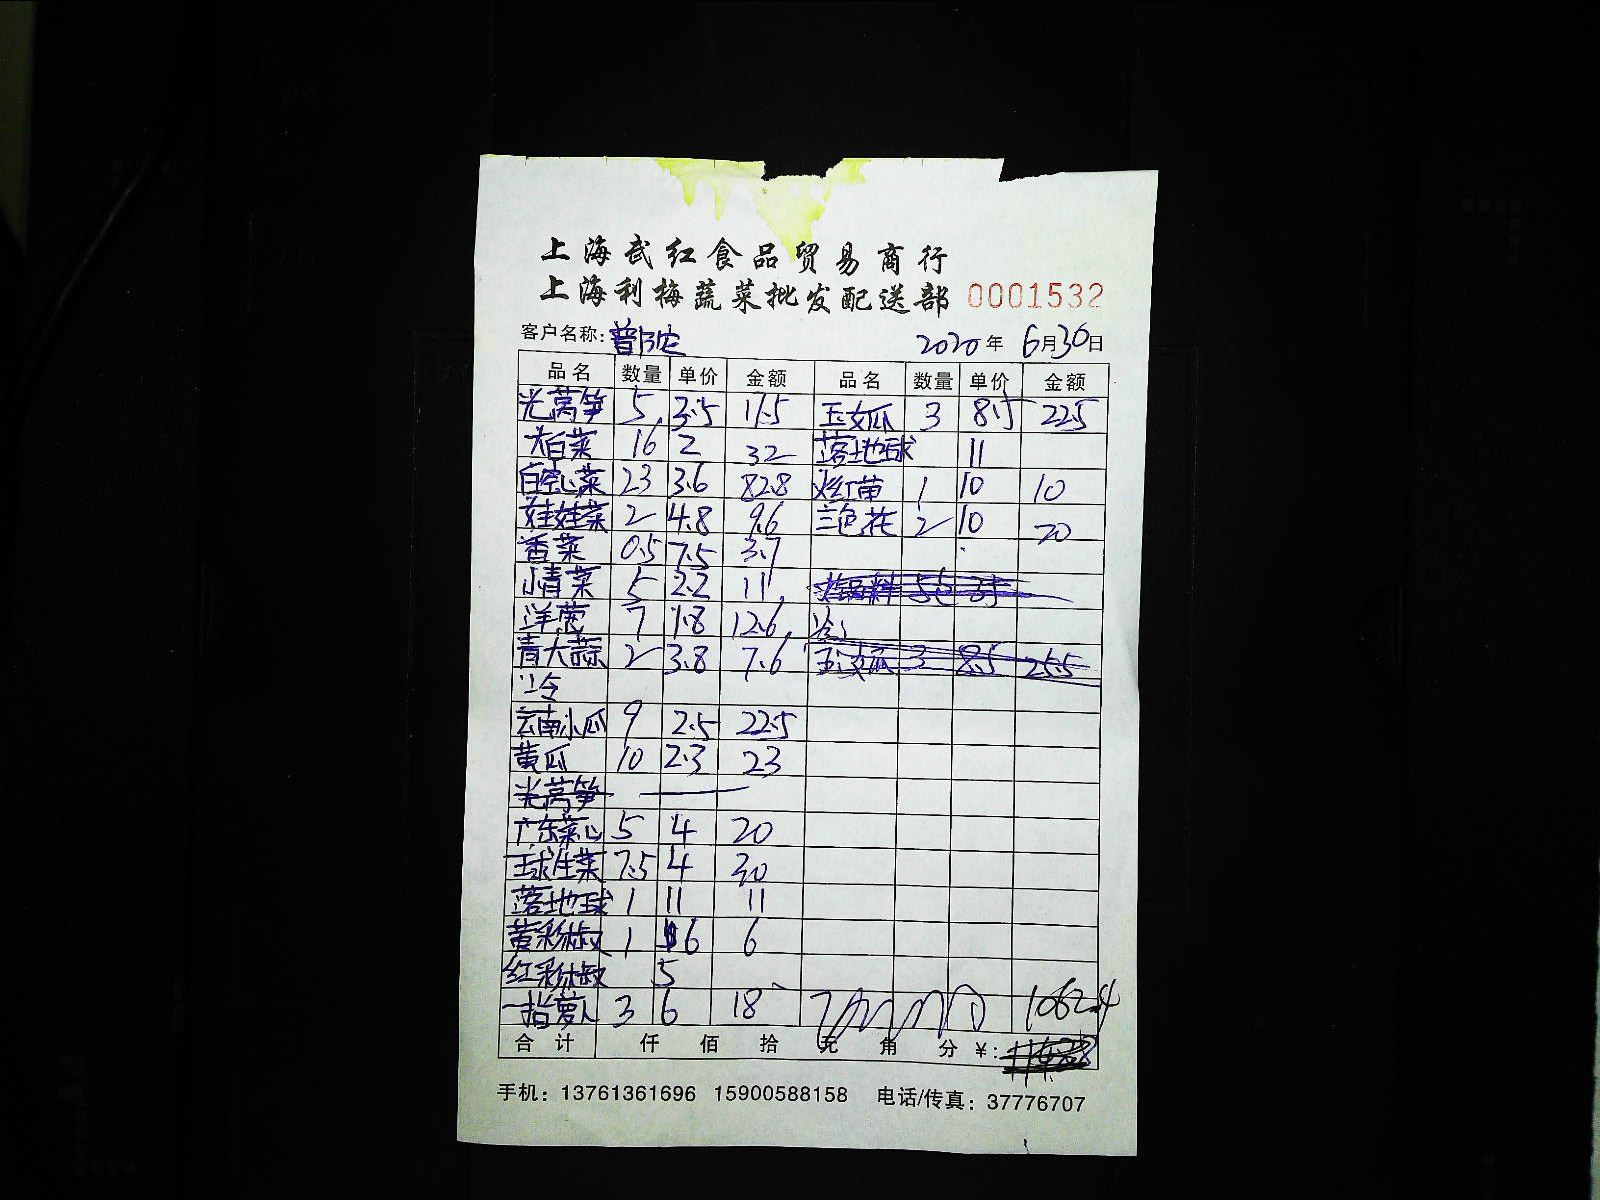 上海武红食品贸易商行
上海利梅蔬菜批发配送部 0001532
客户名称: 普陀 2020年 6月30日
品名 数量 单价 金额 品名 数量 单价 金额
光莴笋 5 3.5 17.5 玉女瓜 3 8.5 22.5
大白菜 16 2 32 落地球 11
白空心菜 23 3.6 82.8 红苗 1 10 10
娃娃菜 2 4.8 9.6 三色花 2 10 20
香菜 0.5 7.5 3.7
小青菜 5 2.2 11
洋葱 7 1.8 12.6 冷
青大蒜 2 3.8 7.6 玉女瓜 3 8.5 25.5
冷
云南小瓜 9 2.5 22.5
黄瓜 10 2.3 23
光莴笋
广东菜心 5 4 20
球生菜 7.5 4 30
落地球 1 11 11
黄彩椒 1 6 6
红彩椒 5
一指萝卜 3 6 18 1062.4
合计 仟 佰 拾 元 角 分 ¥:
手机: 13761361696 15900588158 电话/传真: 37776707